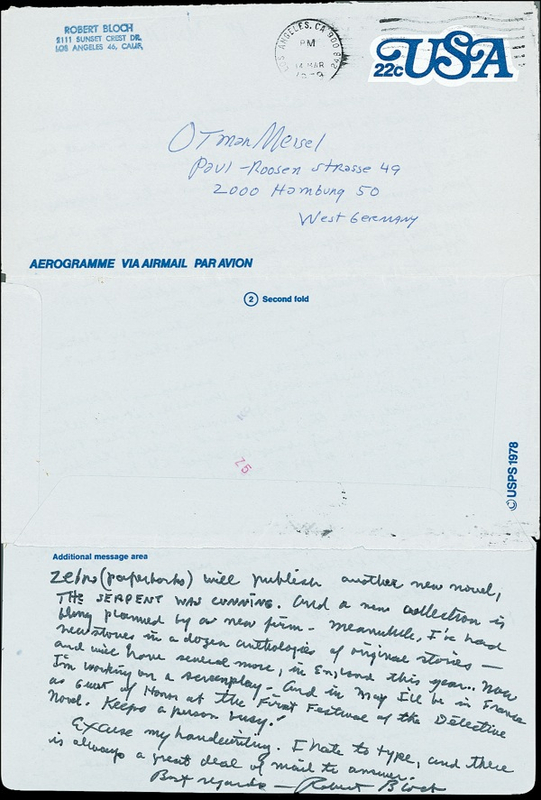 ROBERT BLOCH
2111 SUNSET CREST DR.
LOS ANGELES 46, CALIF.
LOS ANGELES, CA 900
PM
14 MAR
USA
22c
Otman Meisel
Paul-Roosen strasse 49
2000 Hamburg 50
West Germany
AEROGRAMME VIA AIRMAIL PAR AVION
2 Second fold
Z5
© USPS 1978
Additional message area
Zebra (paperbacks) will publish another new novel,
THE SERPENT WAS CUNNING. And a new collection is
being planned by a new firm - meanwhile, I've had
new stories in a dozen anthologies of original stories —
and will have several more, in England this year... Now
I'm working on a screenplay. And in May I'll be in France
as Guest of Honor at the First Festival of the Detective
Novel. Keeps a person busy!
Excuse my handwriting. I hate to type, and there
is always a great deal of mail to answer.
Best regards — Robert Bloch